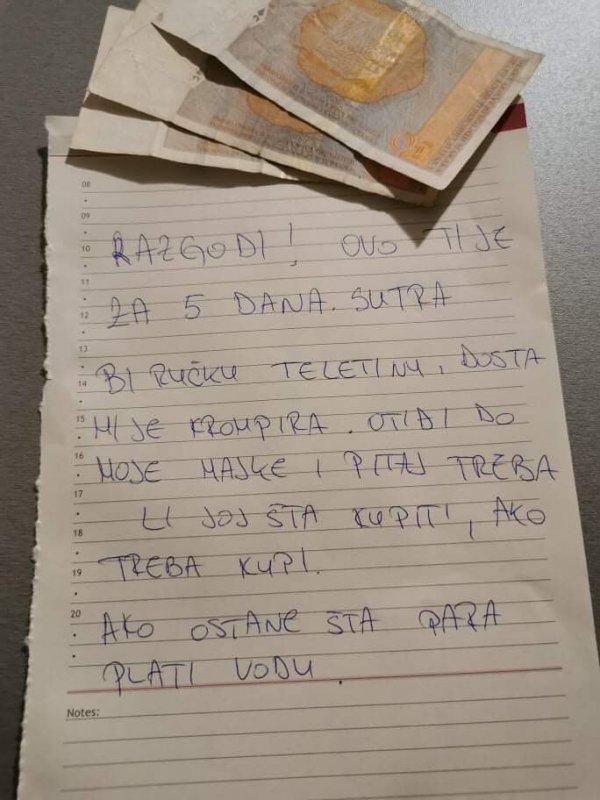 50
08
09
10 RAZGODI! OVO TI JE
11
12 ZA 5 DANA. SUTRA
13
14 BI RUČKU TELETINU, DOSTA
15 MI JE KROMPIRA. OTIĐI DO
16 MOJE MAJKE I PITAJ TREBA
17
18 LI JOJ ŠTA KUPITI, AKO
19 TREBA KUPI.
20 AKO OSTANE ŠTA PARA
PLATI VODU.
Notes: